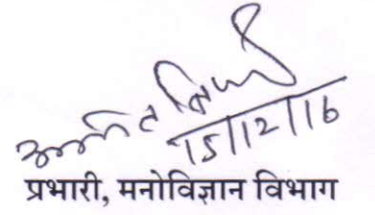 15/12/16
प्रभारी, मनोविज्ञान विभाग